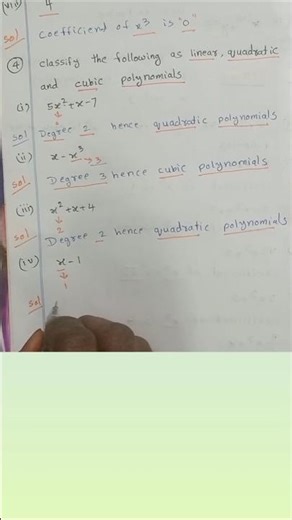 (viii) 4
Sol Coefficient of x³ is "0"
④ classify the following as linear, quadratic
and cubic polynomials
(i) 5x²+x-7
Sol Degree 2 hence quadratic polynomials
(ii) x-x³ → 3
Sol Degree 3 hence cubic polynomials
(iii) x²+x+4
↓
2
Sol Degree 2 hence quadratic polynomials
(iv) x-1
↓
1
Sol